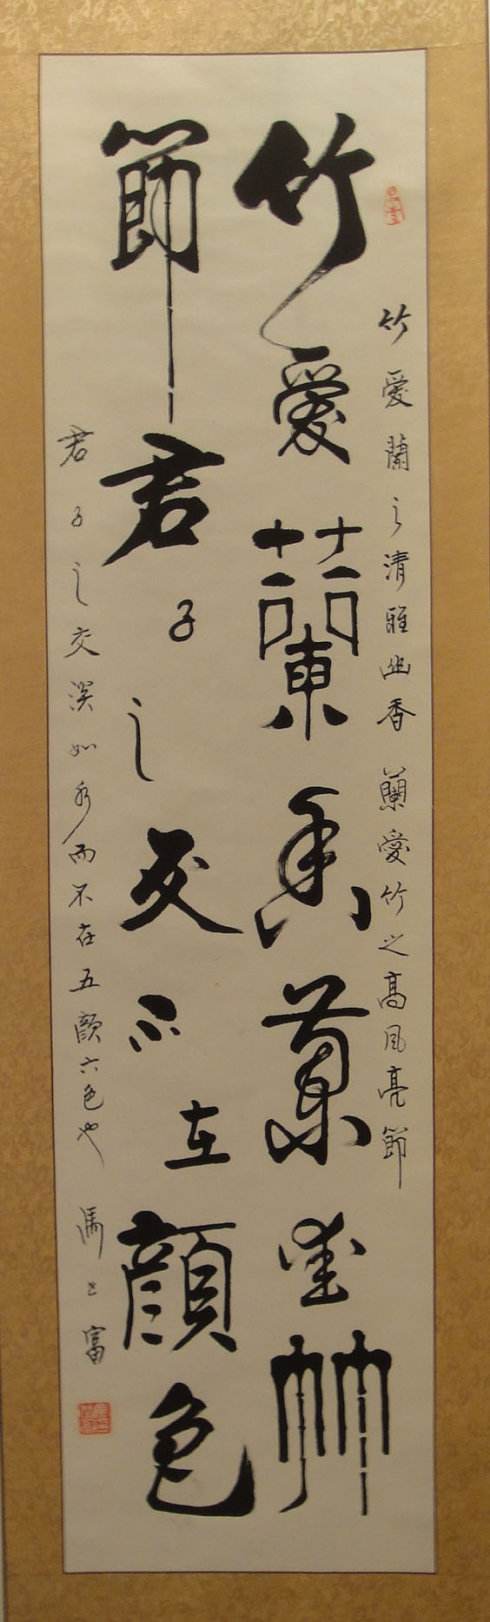 竹愛蘭之清雅幽香 蘭愛竹之高風亮節
竹愛蘭香蘭愛竹
節君子之交不在顏色
君子之交淡如水而不在五顏六色也
馮 富